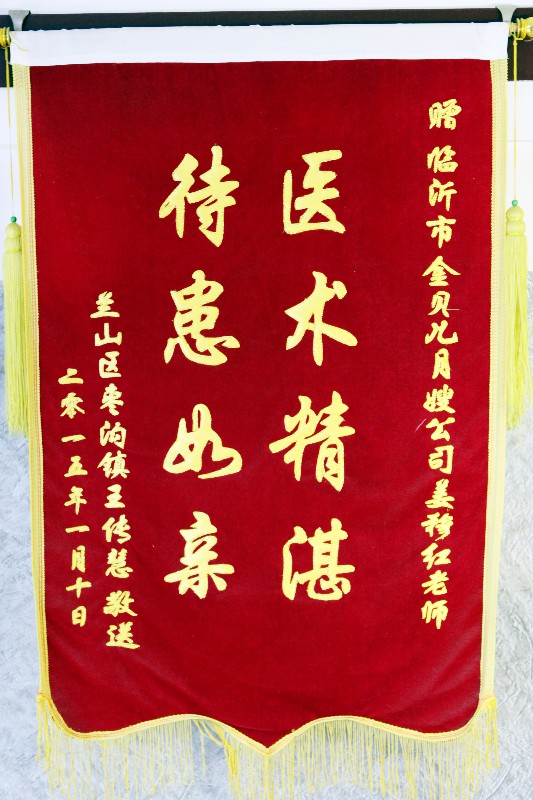 赠 临沂市金贝儿月嫂公司姜穆红老师
医术精湛
待患如亲
兰山区枣沟镇王传慧 敬送
二零一五年一月十日